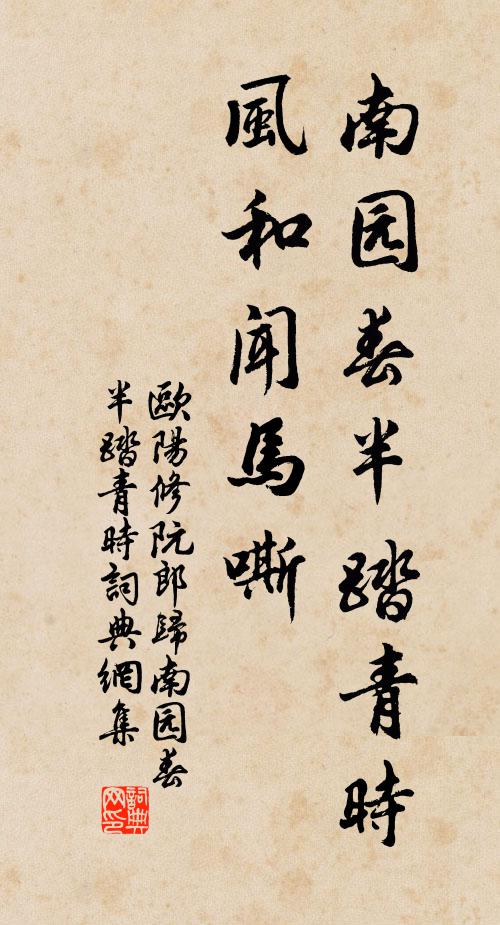 南园春半踏青時
風和闻馬嘶
歐陽修阮郎歸南园春
半踏青時詞典網集
詞典
网印